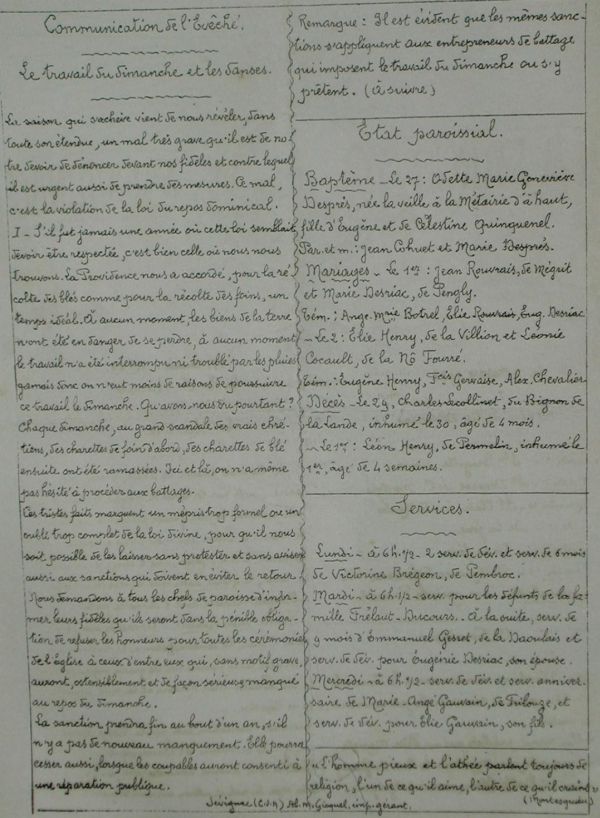 Communication de l'Evêché.
Le travail du dimanche et les danses.
La saison qui s'achève vient de nous révéler, dans
toute son étendue, un mal très grave qu'il est de no
tre devoir de dénoncer devant nos fidèles et contre lequel
il est urgent aussi de prendre des mesures. Ce mal,
c'est la violation de la loi du repos dominical.
I - S'il fut jamais une année où cette loi semblait
devoir être respectée, c'est bien celle où nous nous
trouvons. La Providence nous a accordé, pour la ré
colte des blés comme pour la récolte des foins, un
temps idéal. À aucun moment les biens de la terre
n'ont été en danger de se perdre, à aucun moment
le travail n'a été interrompu ni troublé par les pluies
jamais donc on n'eut moins de raisons de poursuivre
ce travail le dimanche. Qu'avons-nous vu pourtant?
Chaque dimanche, au grand scandale des vrais chré-
tiens, des charettes de foin d'abord, des charettes de blé
ensuite ont été ramassées. Ici et là, on n'a même
pas hésité à procéder aux battages.
Ces tristes faits marquent un mépris trop formel ou un
oubli trop complet de la loi divine, pour qu'il nous
soit possible de les laisser sans protester et sans aviser
aussi aux sanctions qui doivent en éviter le retour.
Nous demandons à tous les chefs de paroisse d'infor-
mer leurs fidèles qu'ils seront dans la pénible obliga-
tion de refuser les honneurs pour toutes les cérémonies
de l'église à ceux d'entre eux qui, sans motif grave
auront, ostensiblement et de façon sérieuse, manqué
au repos du dimanche.
La sanction prendra fin au bout d'un an, s'il
n'y a pas de nouveau manquement. Elle pourra
cesser aussi, lorsque les coupables auront consenti à
une réparation publique.
Remarque : Il est évident que les mêmes sanc-
tions s'appliquent aux entrepreneurs de battage
qui imposent le travail du dimanche ou s'y
prêtent. (à suivre)
Etat paroissial.
Baptême - Le 27 : Odette Marie Geneviève
Després, née la veille à la Métairie d'à haut,
fille d'Eugène et de Célestine Quinquenel.
Par. et m. : Jean Cohuet et Marie Després.
Mariages - Le 1er : Jean Rouvrais, de Mégrit
et Marie Desriac, de Pengly.
Tém. : Ange Marie Botrel, Élie Rouvrais, Eug. Desriac
- Le 2 : Élie Henry, de la Villion et Léonie
Cocault, de la Nô Fourré.
Tém. : Eugène Henry, Fcois Gervaise, Alex. Chevalier
Décès - Le 29, Charles Lecollinet, du Bignon de
la Lande, inhumé le 30, âgé de 4 mois.
- Le 1er : Léon Henry, de Permelin, inhumé le
1er, âgé de 4 semaines.
Services.
Lundi - à 6h.1/2 - 2 serv. de dév. et serv. de 6 mois
de Victorine Brégeon, de Pembroc.
Mardi - à 6h.1/2 - serv. pour les défunts de la fa-
mille Frélaut-Discours. - À la suite, serv. de
9 mois d'Emmanuel Gesret, de la Daoulais et
serv. de dév. pour Eugénie Desriac, son épouse.
Mercredi - à 6h.1/2 - serv. de dév. et serv. anniver-
saire de Marie-Ange Gauvain, de Trilouze, et
serv. de dév. pour Élie Gauvain, son fils.
« L'homme pieux et l'athée parlent toujours de
religion, l'un de ce qu'il aime, l'autre de ce qu'il craint »
(Montesquieu)
Sévignac (C.d.N) Ab. M. Gicquel, imp. gérant.